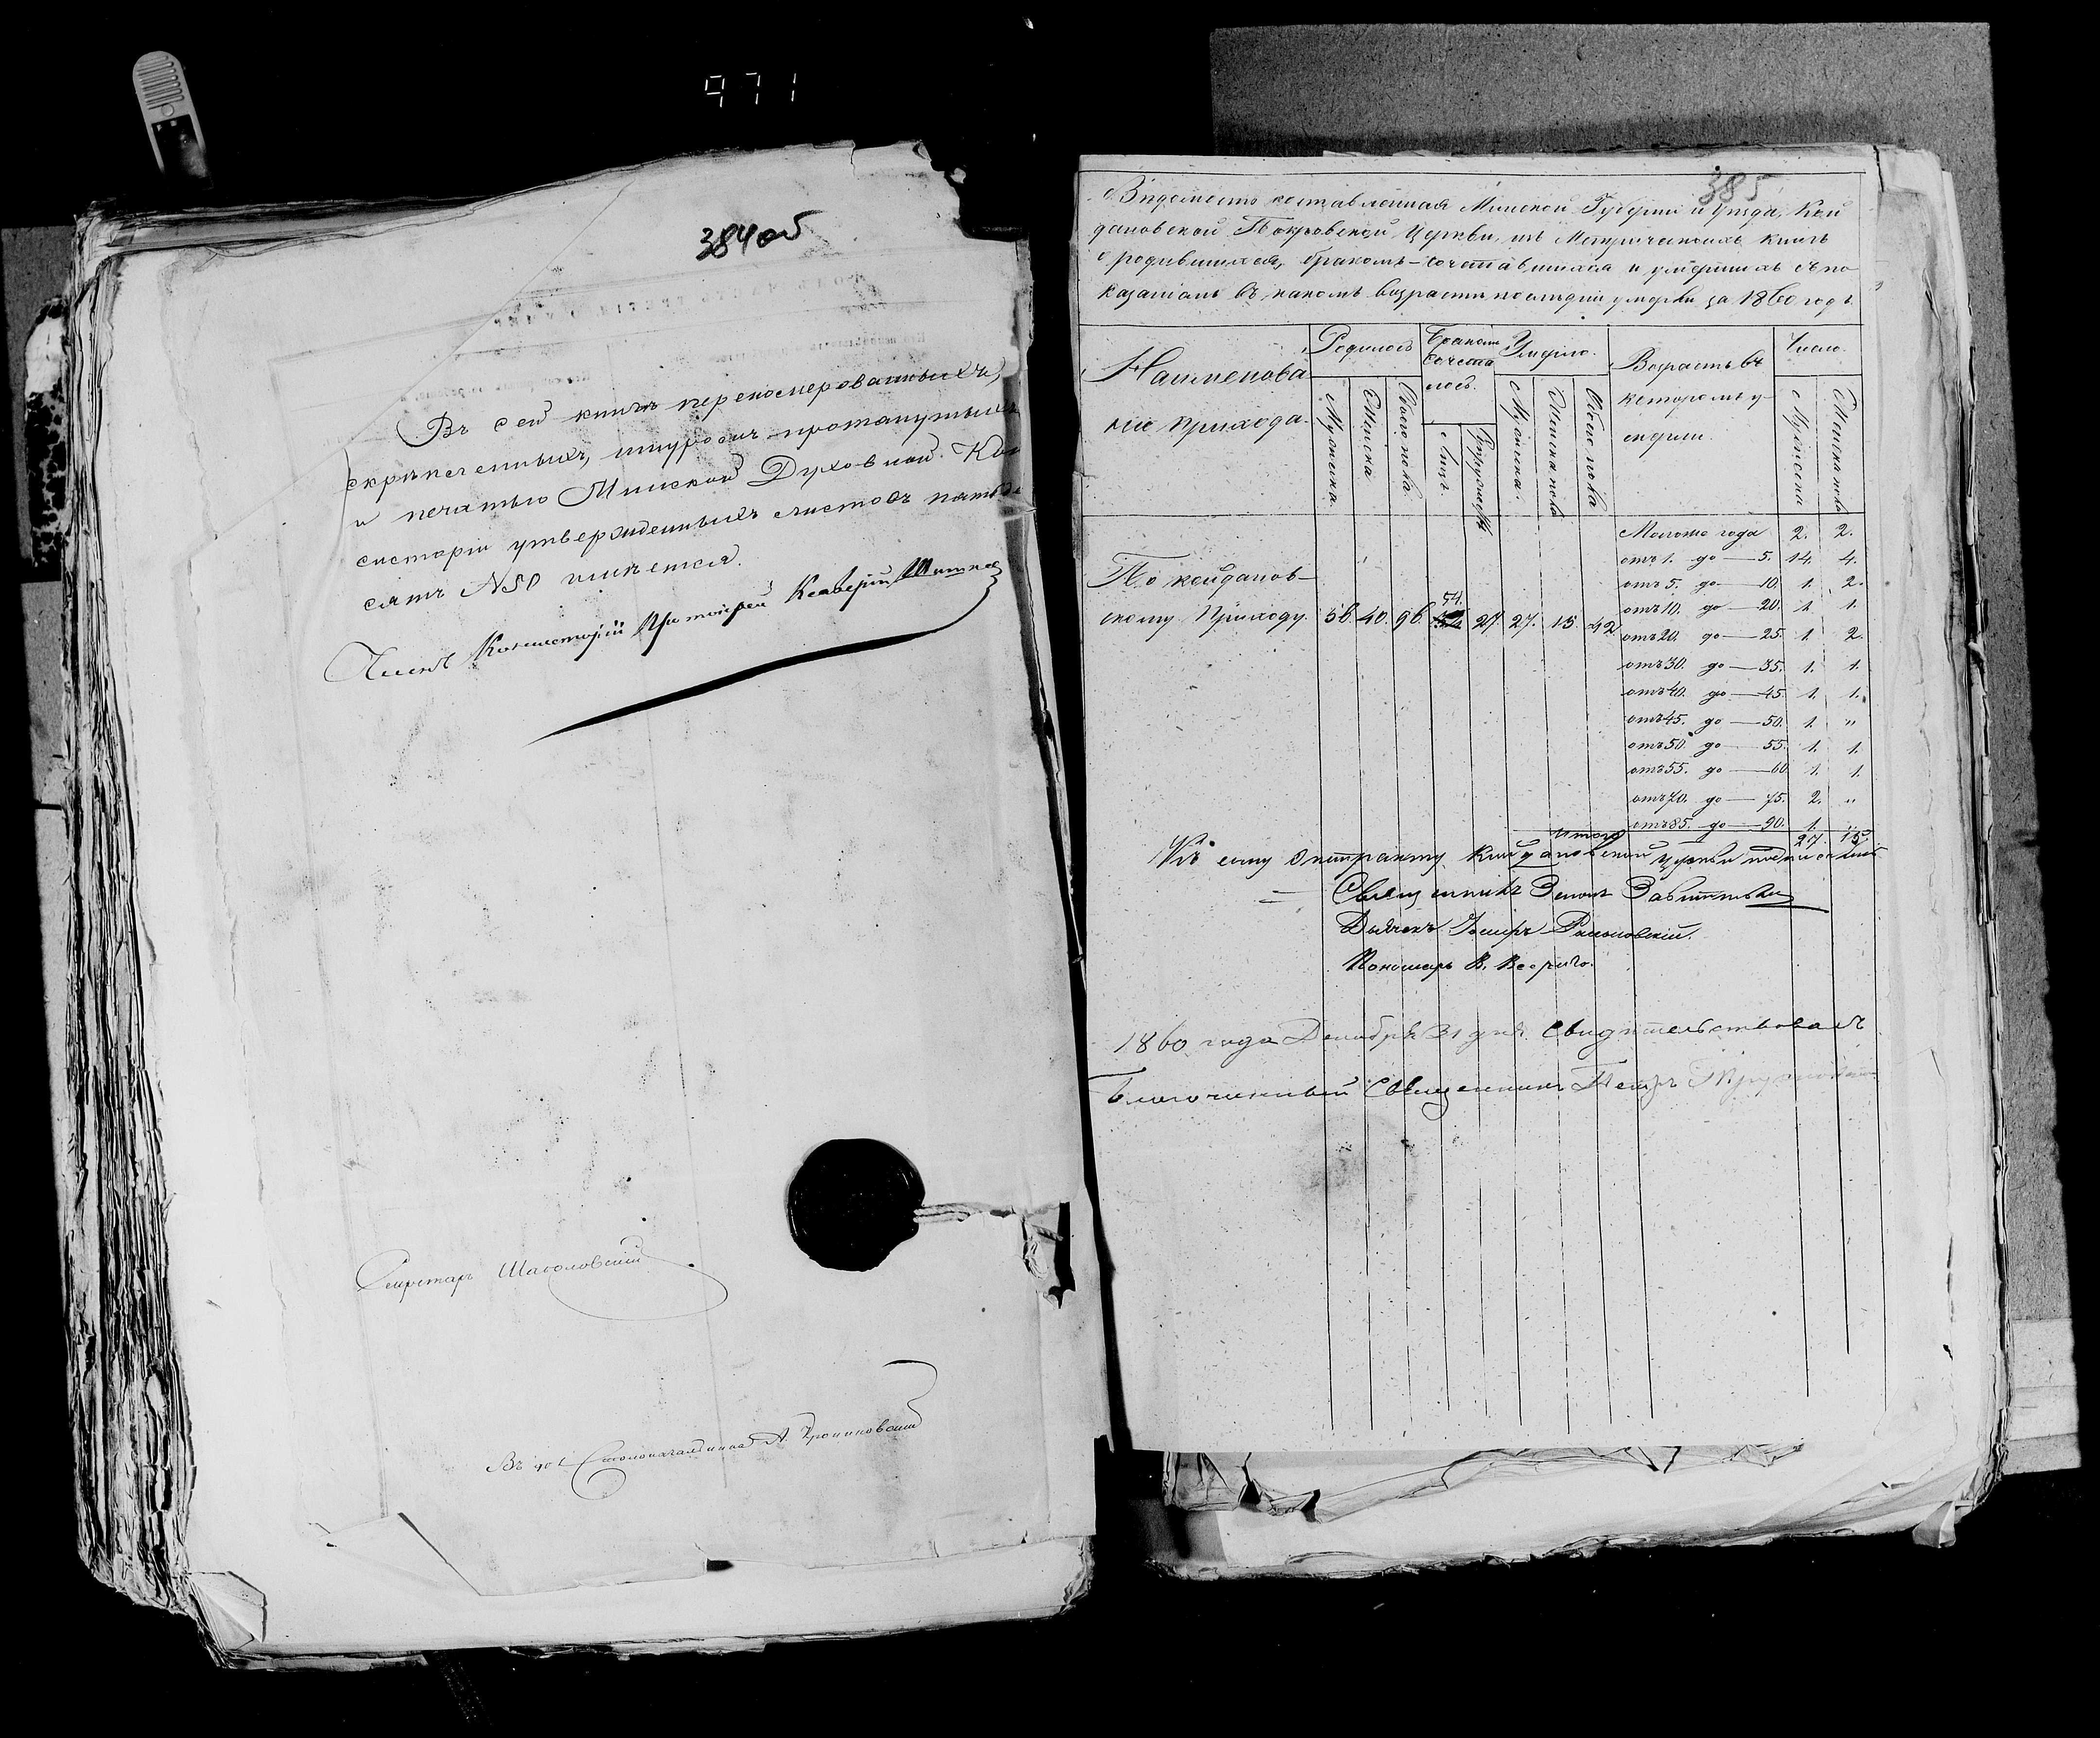 971
384 об
Въ сей книгѣ перенумерованныхъ,
скрѣпленныхъ, шнуромъ протянутыхъ
и печатью Минской Духовной Кон
систоріи утвержденныхъ листовъ пятьде
сятъ N50 имѣется.
Членъ Консисторіи Протоіерей
Секретарь
Въ Столоначальника А.
385
Вѣдомость составленная Минской Губерніи и уѣзда, Кой
дановской Покровской Церкви, изъ Метрическихъ книгъ
о родившихся, бракомъ-сочетавшихся и умершихъ съ по
казаніемъ въ какомъ возрастѣ послѣдніе умерли за 1860 годъ
Наименова
ніе прихода.
Родилось
Мужеска.
Женска
Обоего пола.
Бракомъ
сочета
лось.
Лицъ.
Супружествъ
Умерло.
Мужеска.
Женска пола
Обоего пола
Возрастъ въ
которомъ у-
мерли.
Число.
Мужеска
Женска пола
По койданов-
скому Приходу. 56. 40. 96. 54. 27. 27. 15. 42.
Моложе года 2. 2.
отъ 1. до — 5. 14. 4.
отъ 5. до — 10. 1. 2.
отъ 10. до — 20. 1. 1.
отъ 20. до — 25. 1. 2.
отъ 30. до — 35. 1. 1.
отъ 40. до — 45. 1. 1.
отъ 45. до — 50. 1. "
отъ 50. до — 55. 1. 1.
отъ 55. до — 60. 1. 1.
отъ 70. до — 75. 2. "
отъ 85. до — 90. 1. "
Итого 27. 15.
Къ сему Экстракту Койдановской церкви
Священникъ
Дьячекъ
Пономарь В.
1860 года Декабря 31 дня. Свидѣтельствовалъ
Благочинный Священникъ Петръ